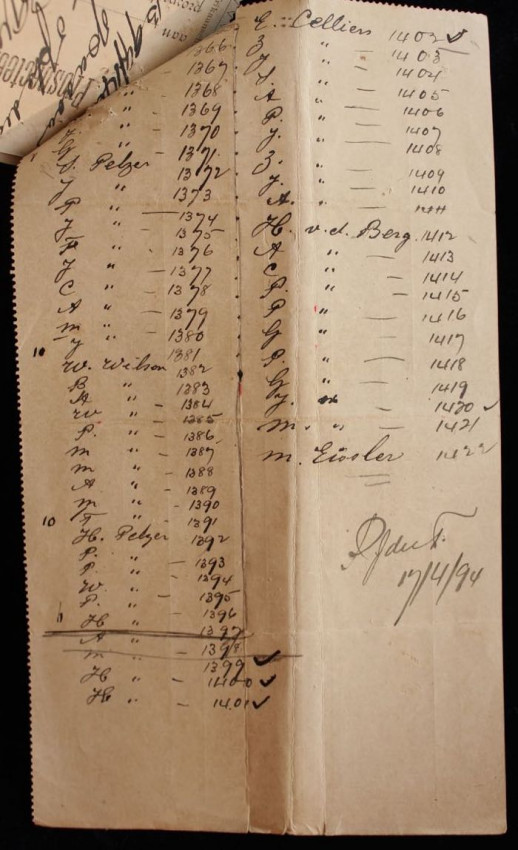 1366
1367
" — 1368
" 1369
" — 1370
" 1371
S. Pelzer 1372
J " 1373
P " — 1374
J " 1375
A " — 1376
J " — 1377
C " — 1378
A " — 1379
m " — 1380
10 y " 1381
W. Wilson 1382
B " 1383
A " — 1384
W " — 1385
P. " — 1386
m " — 1387
m " — 1388
A " — 1389
m " — 1390
10 F " — 1391
H. Pelzer 1392
P. " — 1393
P. " — 1394
W. " — 1395
P. " — 1396
H " — 1397
A " — 1398
m " — 1399 ✓
H " — 1400 ✓
H " — 1401 ✓
E. Celliers 1402 ✓
Z " — 1403
J " — 1404
S. " — 1405
A " — 1406
P. " — 1407
J. " — 1408
Z. " — 1409
J. " — 1410
A. "
H. v.d. Berg. 1412
A " — 1413
C " — 1414
P. " — 1415
P " — 1416
G " — 1417
P. " — 1418
G " — 1419
y. " — 1420 ✓
m. " — 1421
m. Eissler 1422
17/4/94